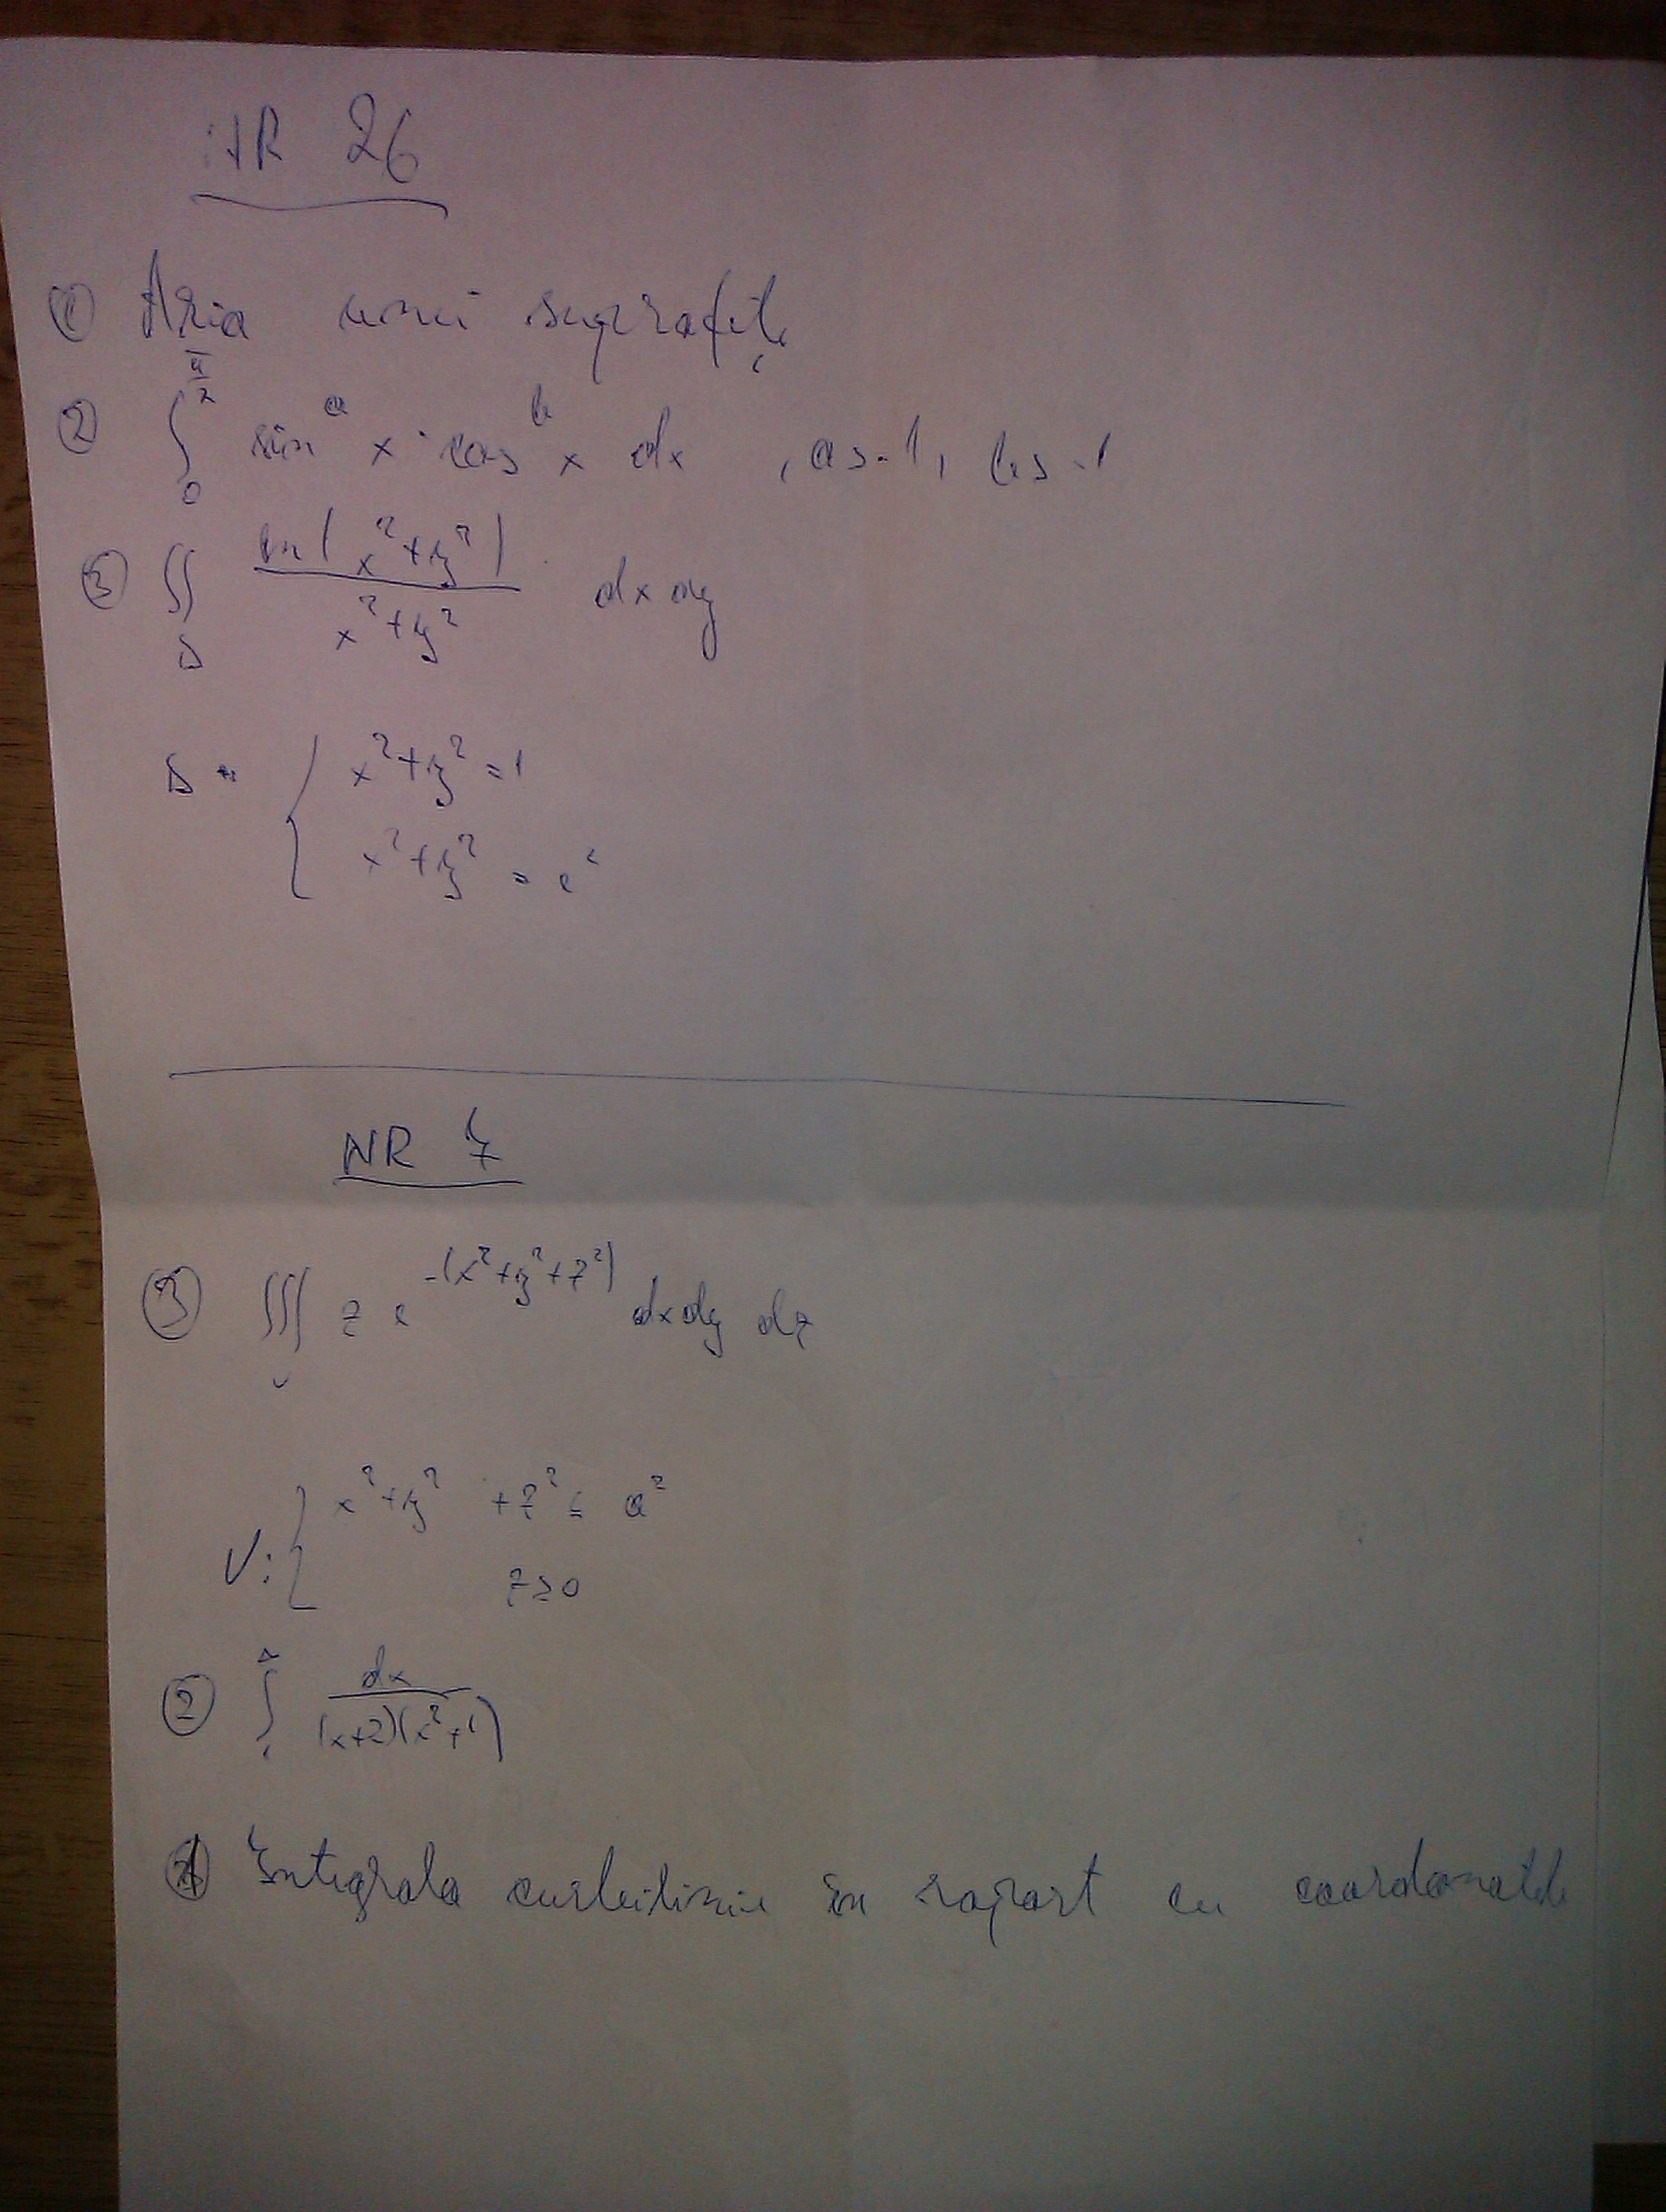 NR 26
① Aria unei suprafețe
② ∫₀^(π/2) sin^a x · cos^b x dx , a > -1, b > -1
③ ∬_D ln(x²+y²) / (x²+y²) dx dy
D = { x²+y² = 1
x²+y² = e²
NR 7
③ ∭_V z e^(-(x²+y²+z²)) dx dy dz
V: { x²+y² +z² ≤ a²
z ≥ 0
② ∫ dx / ((x+2)(x²+1))
① Integrala curbilinie în raport cu coordonatele